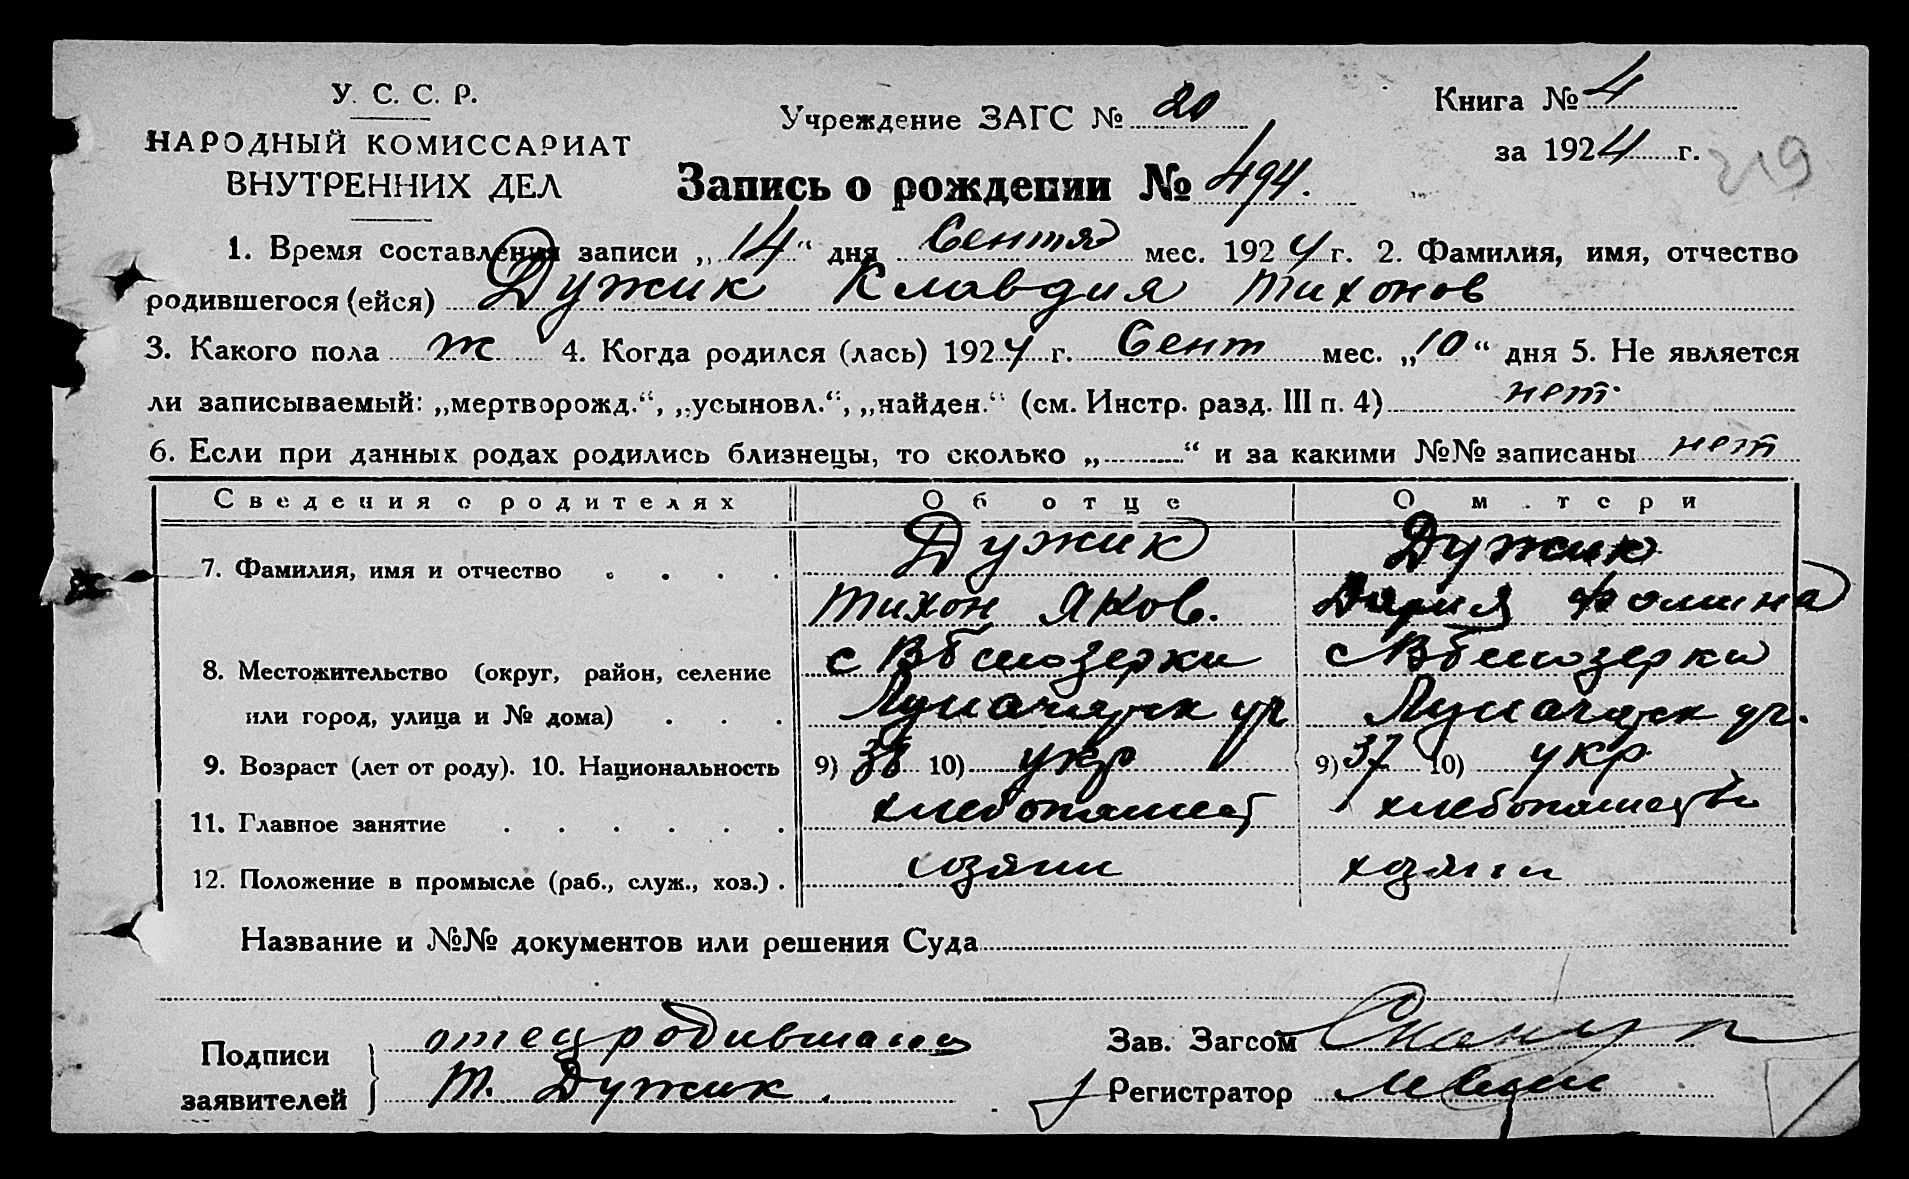 У. С. С. Р.
НАРОДНЫЙ КОМИССАРИАТ
ВНУТРЕННИХ ДЕЛ
Учреждение ЗАГС № 20
Книга № 4
за 1924 г.
219
Запись о рождении № 494.
1. Время составления записи „14“ дня Сентя мес. 1924 г. 2. Фамилия, имя, отчество
родившегося (ейся) Дужик Клавдия Тихонов
3. Какого пола ж 4. Когда родился (лась) 1924 г. Сент мес. „10“ дня 5. Не является
ли записываемый: „мертворожд.“, „усыновл.“, „найден.“ (см. Инстр. разд. III п. 4) нет.
6. Если при данных родах родились близнецы, то сколько „..........“ и за какими №№ записаны нет
Сведения о родителях Об отце О м.тери
7. Фамилия, имя и отчество . . . . Дужик Дужик
Тихон Яков. Дария Фомина
8. Местожительство (округ, район, селение с Вбелозерки с Вбелозерки
или город, улица и № дома) . . .
9. Возраст (лет от роду). 10. Национальность 9) 38 10) укр 9) 37 10) укр
11. Главное занятие . . . . . . хлебопашест хлебопашество
12. Положение в промысле (раб., служ., хоз.) . хозяин хозяин
Название и №№ документов или решения Суда
Подписи
заявителей
отец
Т. Дужик.
Зав. Загсом
Регистратор